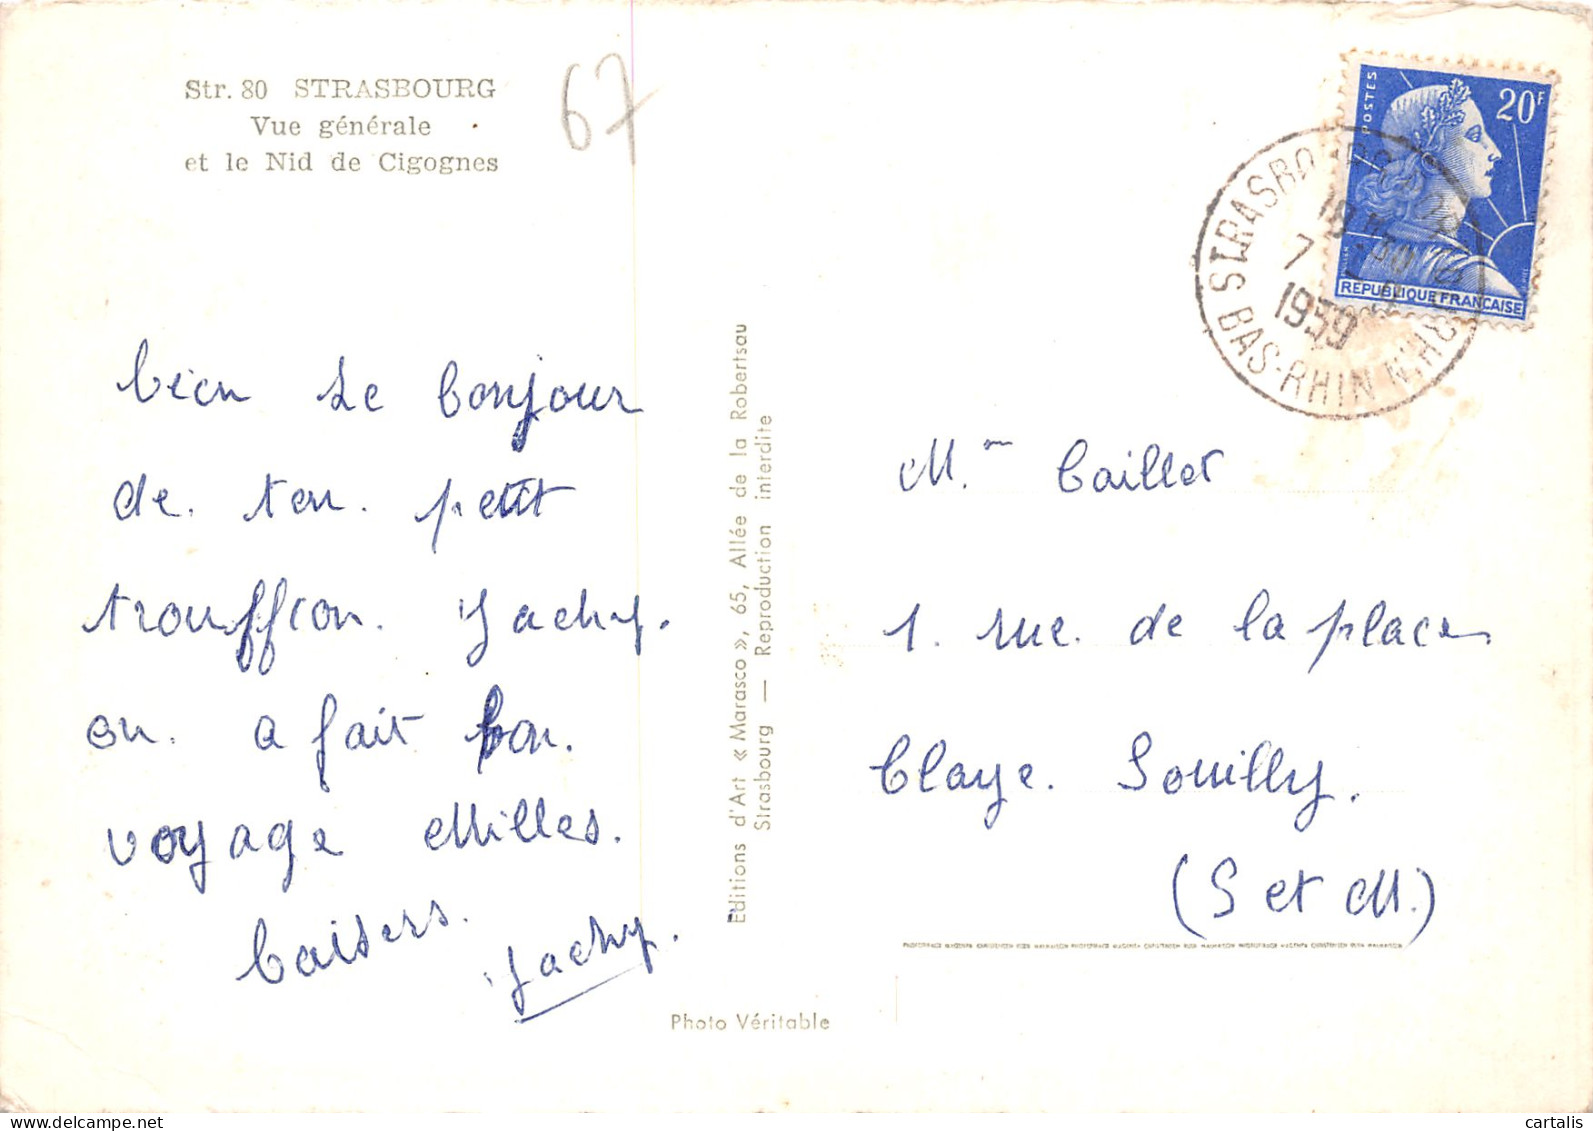 Str. 80 STRASBOURG
Vue générale
et le Nid de Cigognes
67
bien le bonjour
de ton petit
trouffion. Jacky.
on a fait bon
voyage Milles.
baisers.
Jacky.
Editions d'Art « Marasco », 65, Allée de la Robertsau
Strasbourg — Reproduction interdite
Photo Véritable
POSTES
20F
REPUBLIQUE FRANÇAISE
STRASBOURG
18 H30
7
1959
BAS-RHIN
Mme Caillet
1. rue. de la place
Claye. Souilly.
(S et M.)
cartalis
www.delcampe.net